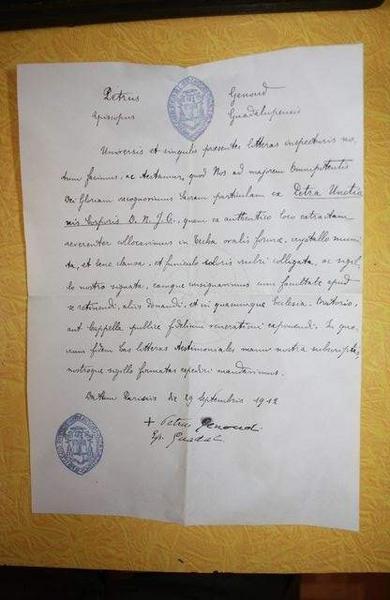 Petrus Genoud
Episcopus Guadalupensis
Universis et singulis presentes litteras inspecturis no,
tum facimus, ac testamur, quod Nos ad majorem Omnipotentis
Dei Gloriam recognovimus Sacram particulam ex Petra Unctio
nis Corporis D. N. J. C., quam ex authentico loco extractam
reverenter collocavimus in theca ovalis formæ, crystallo muni
ta, et bene clausa et funiculo rubri colligata, ac sigil,
lo nostro signata, eamque consignavimus cum facultate apud
se retinendi, aliis donandi, et in quacumque Ecclesia, Oratorio,
aut Cappella publice fidelium venerationi exponendi. In quo,
rum fidem has litteras testimoniales manu nostra subscriptas,
nostroque sigillo firmatas expediri mandavimus.
Datum Parisiis die 29 Septembris 1912
+ Petrus Genoud
Ep. Guadal